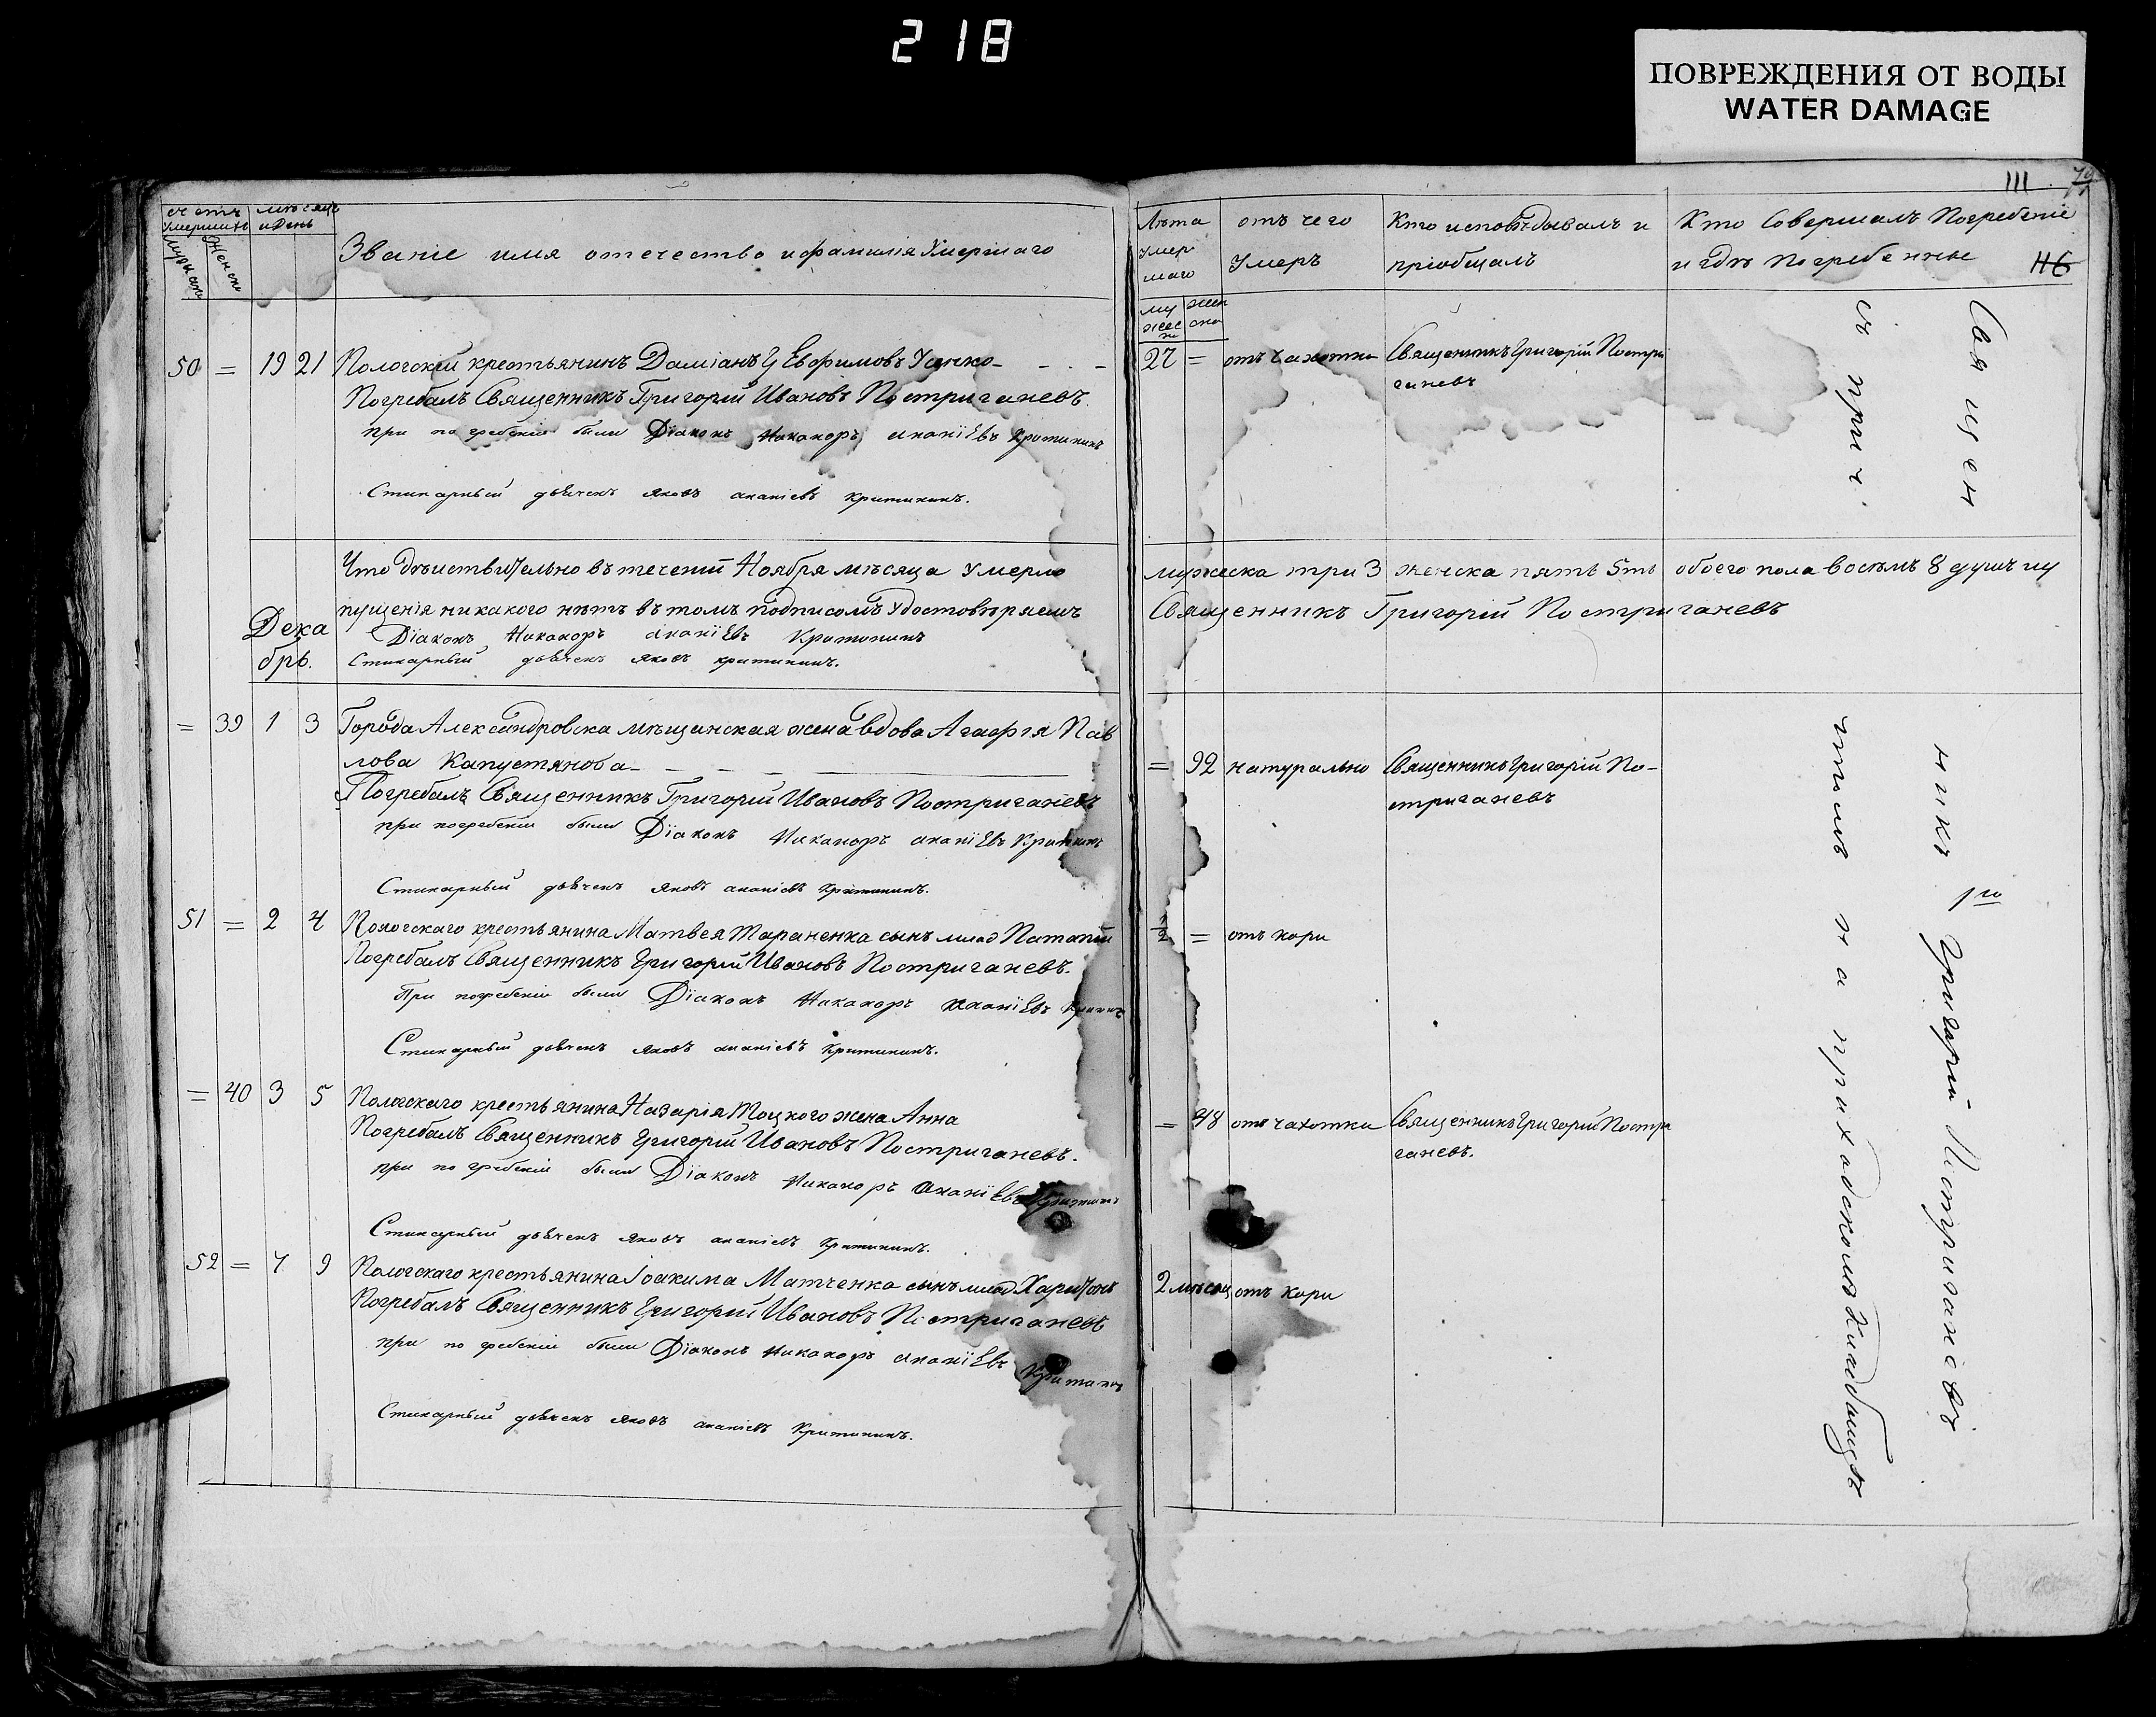 218
ПОВРЕЖДЕНИЯ ОТ ВОДЫ
WATER DAMAGE
111
счетъ умершихъ
мужеска
женска
мѣсяцъ и день
Званіе имя отечество и фамилія Умершаго
50 = 19 21 Пологскій крестьянинъ Даміанъ Евфимовъ
Погребалъ Священникъ Григорій Ивановъ Постриганевъ.
при погребеніи были Діаконъ Никаноръ Ананіевъ Критининъ
Стихарный дьячекъ Яковъ Ананіевъ Критининъ.
Декабрь.
Что дѣиствительно въ теченіи Ноября мѣсяца умерло
пущенія никакого нѣтъ въ томъ подписомъ удостовѣряемъ
Діаконъ Никаноръ Ананіевъ Критининъ
Стихарный дьячекъ Яковъ Критининъ.
= 39 1 3 Города Александровска мѣщанская жена вдова Агафія Пав
лова Капустянова
Погребалъ Священникъ Григорій Ивановъ Постриганевъ
при погребеніи были Діаконъ Никаноръ Ананіевъ Критининъ
Стихарный дьячекъ Яковъ Ананіевъ Критининъ.
51 = 2 4 Пологскаго крестьянина Матвея Тараненка сынъ млад Патапій
Погребалъ Священникъ Григорій Ивановъ Постриганевъ.
При погребеніи были Діаконъ Никаноръ Ананіевъ
Стихарный дьячекъ Яковъ Ананіевъ Критининъ.
= 40 3 5 Пологскаго крестьянина Назарія Тоцкого жена Анна
Погребалъ Священникъ Григорій Ивановъ Постриганевъ.
при погребеніи были Діаконъ Никаноръ Ананіевъ Критининъ
Стихарный дьячекъ Яковъ Ананіевъ Критининъ.
52 = 7 9 Пологскаго крестьянина Іоакима Матченка сынъ млад Харитонъ
Погребалъ Священникъ Григорій Ивановъ Постриганевъ
при погребеніи были Діаконъ Никаноръ Ананіевъ Критининъ
Стихарный дьячекъ Яковъ Ананіевъ Критининъ.
Лѣта умершаго
мужеск
женска
отъ чего Умеръ
Кто исповѣдывалъ и пріобщалъ
Кто Совершалъ Погребеніе
и гдѣ погребенные
27 = отъ чахотки Священникъ Григорій Постри
ганевъ
мужеска три 3 женска пять 5ть обоего пола восемь 8 душъ
Священникъ Григорій Постриганевъ
= 92 натурально Священникъ Григорій По-
стриганевъ
1/2 = отъ кори
= 48 отъ чахотки Священникъ Григорій Постри
ганевъ.
2 мѣсяц отъ кори
Священникъ Григорій Постриганіевъ
съ причтомъ на приходскомъ кладбищѣ